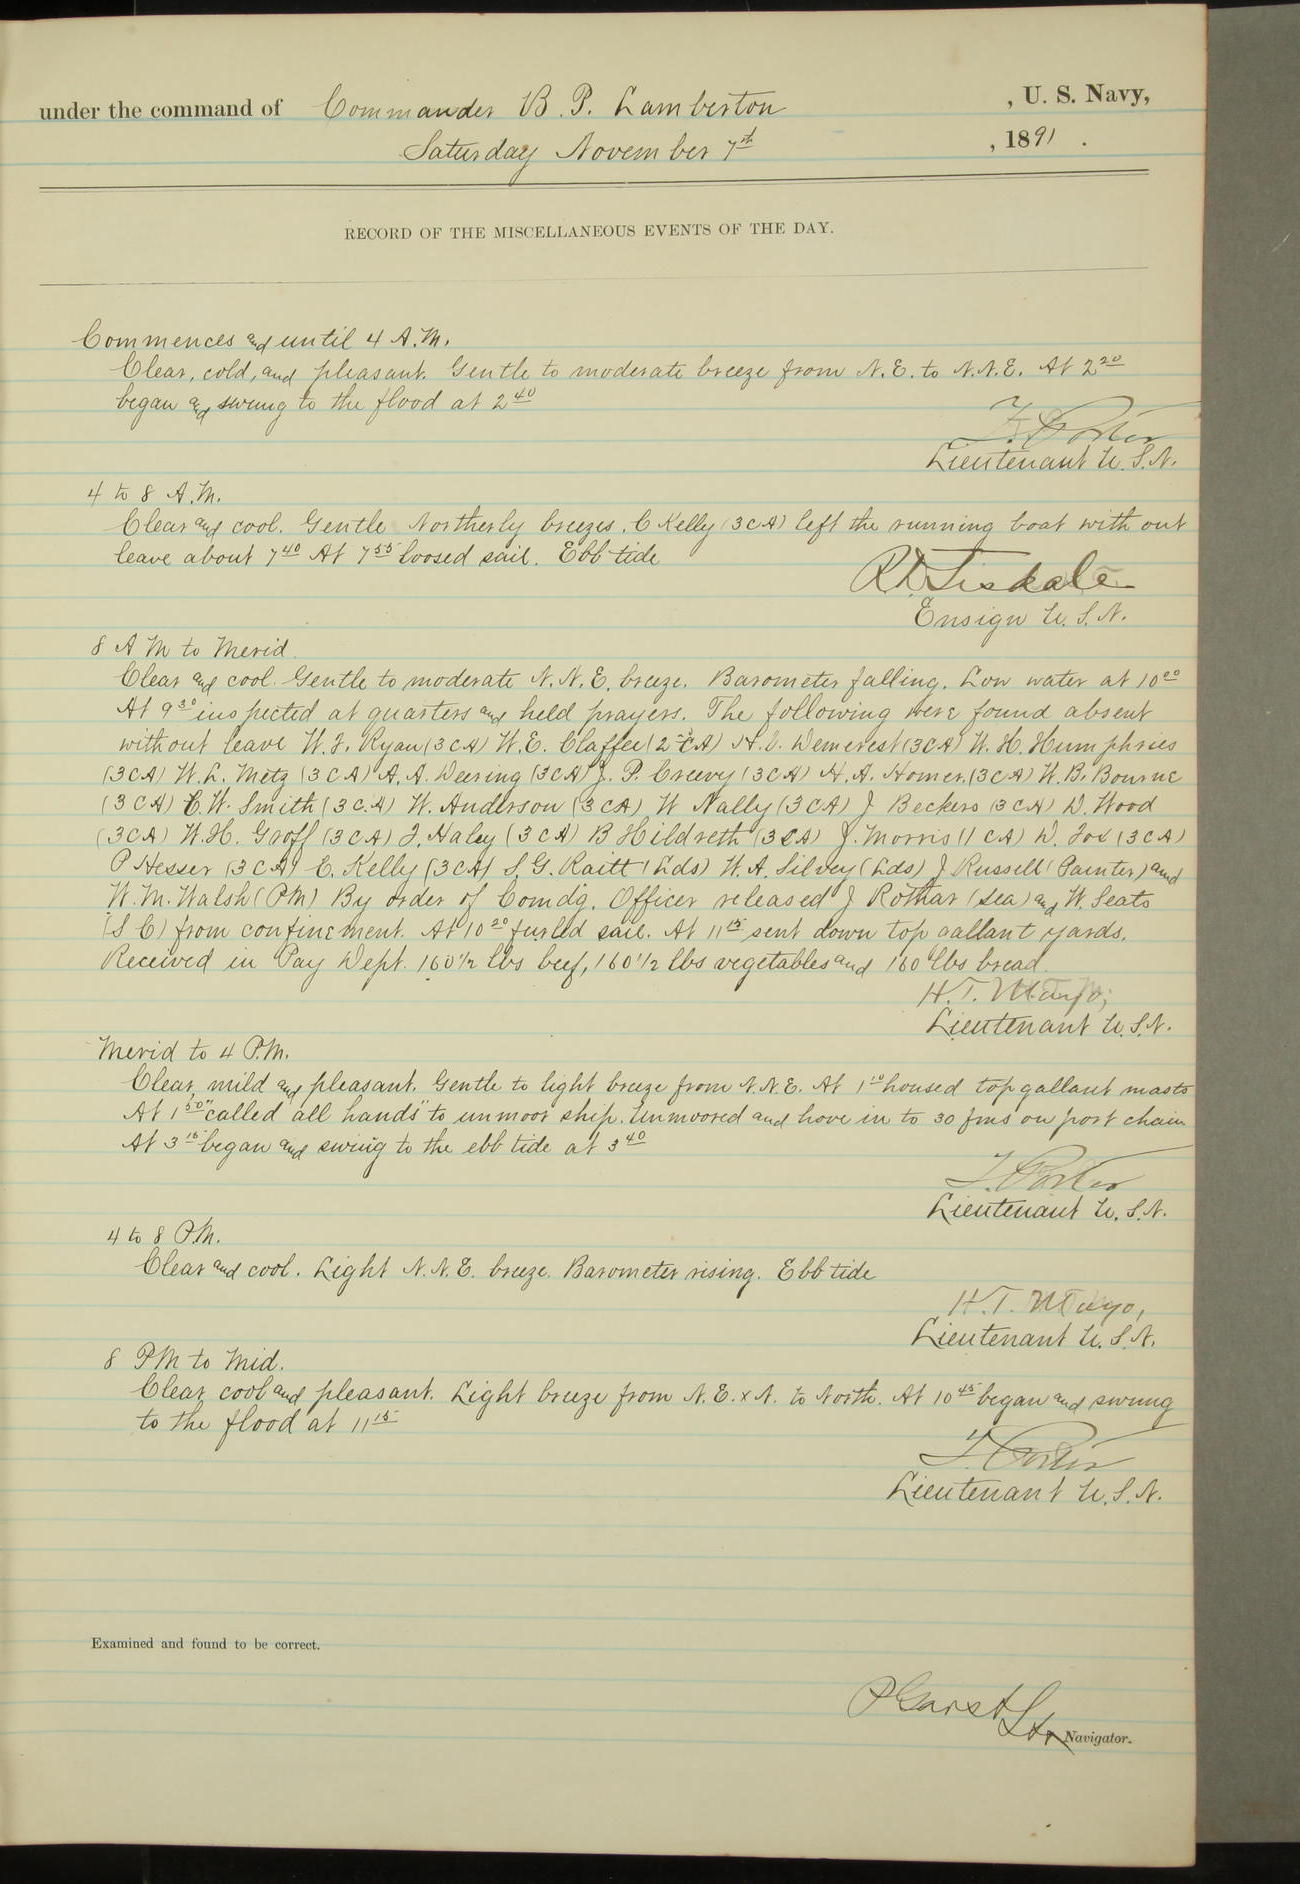 under the command of Commander B. P. Lamberton , U. S. Navy,
Saturday November 7th , 1891 .
RECORD OF THE MISCELLANEOUS EVENTS OF THE DAY.
Commences and until 4 A.M.
Clear, cold, and pleasant. Gentle to moderate breeze from N.E. to N.N.E. At 2 20
began and swung to the flood at 2 40
Lieutenant U.S.N.
4 to 8 A.M.
Clear and cool. Gentle Northerly breezes. C Kelly (3CA) left the running boat with out
leave about 7 40 At 7 55 loosed sail. Ebb tide
R. Tisdale
Ensign U.S.N.
8 AM to Merid.
Clear and cool. Gentle to moderate N.N.E. breeze. Barometer falling. Low water at 10 20
At 9 30 inspected at quarters and held prayers. The following were found absent
without leave W. J. Ryan (3CA) W. E. Claffee (2 CA) H. C. Demerest (3CA) W. H. Humphries
(3CA) W. L. Metz (3CA) A. A. Deering (3CA) J. P. Creevy (3CA) H. A. Homer (3CA) W. B. Bourne
(3CA) C. W. Smith (3CA) W. Anderson (3CA) W Nally (3CA) J Beckers (3CA) D. Wood
(3CA) W. H. Groff (3CA) J. Haley (3CA) B Hildreth (3CA) J. Morris (1CA) D. Fox (3CA)
P Hesser (3CA) C. Kelly (3CA) S. G. Raitt (Lds) W. A. Silvey (Lds) J Russell (Painter) and
W. M. Walsh (PM) By order of Comdg. Officer released J Rothar (Sea) and W. Seats
(SC) from confinement. At 10 20 furled sail. At 11 15 sent down top gallant yards.
Received in Pay Dept. 160 1/2 lbs beef, 160 1/2 lbs vegetables and 160 lbs bread.
H. T. Mayo,
Lieutenant U.S.N.
Merid to 4 P.M.
Clear, mild and pleasant. Gentle to light breeze from N.N.E. At 1 10 housed topgallant masts
At 1 50 "called all hands" to unmoor ship. Unmoored and hove in to 30 fms on port chain
At 3 15 began and swung to the ebb tide at 3 40
Lieutenant U.S.N.
4 to 8 P.M.
Clear and cool. Light N.N.E. breeze. Barometer rising. Ebb tide
H. T. Mayo,
Lieutenant U.S.N.
8 PM to Mid.
Clear, cool and pleasant. Light breeze from N.E. x N. to North. At 10 45 began and swung
to the flood at 11 15
Lieutenant U.S.N.
Examined and found to be correct.
P Garst Lt.
Navigator.